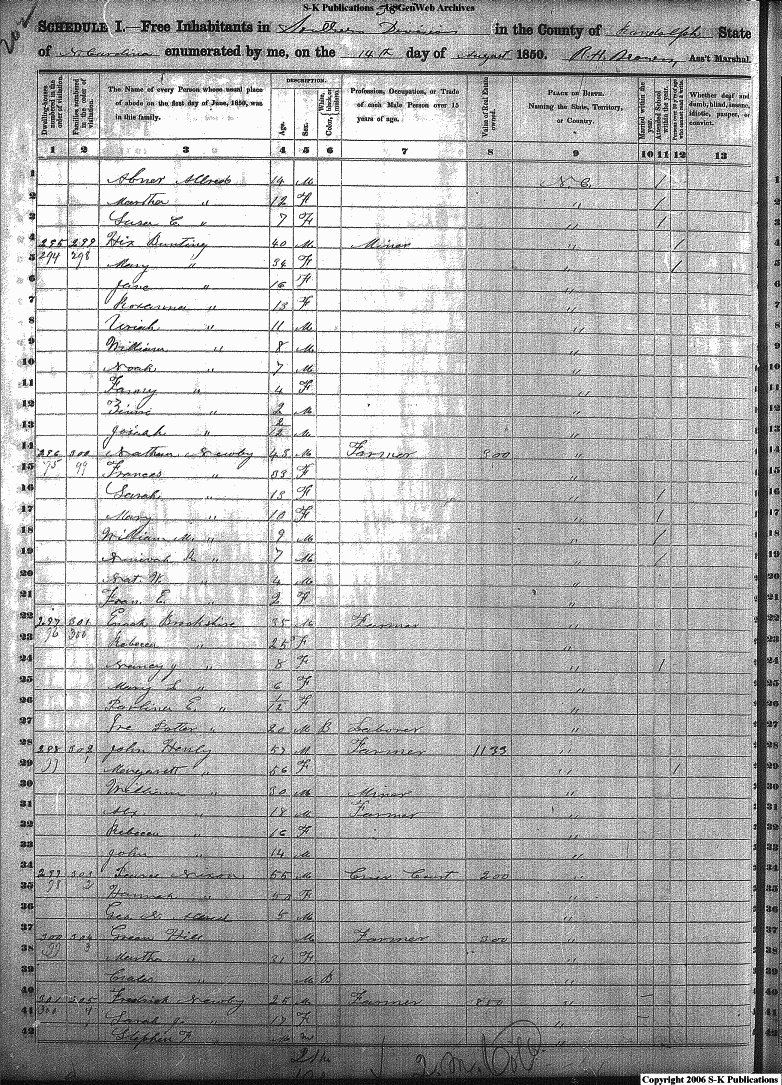 S-K Publications - USGenWeb Archives
SCHEDULE I.—Free Inhabitants in Southern Division in the County of Randolph State
of N. Carolina enumerated by me, on the 14th day of August 1850. R. H. Brown, Ass't Marshal.
Dwelling-houses numbered in the order of visitation.
Families numbered in the order of visitation.
The Name of every Person whose usual place of abode on the first day of June, 1850, was in this family.
DESCRIPTION.
Age.
Sex.
White, black, or mulatto.
Color,
Profession, Occupation, or Trade of each Male Person over 15 years of age.
Value of Real Estate owned.
PLACE OF BIRTH. Naming the State, Territory, or Country.
Married within the year.
Attended School within the year.
Persons over 20 y'rs of age who cannot read & write.
Whether deaf and dumb, blind, insane, idiotic, pauper, or convict.
1 2 3 4 5 6 7 8 9 10 11 12 13
1 Abner Allred 14 M N. C. / 1
2 Martha " 12 F " / 2
3 Susan C. " 7 F " / 3
4 295 299 Hix Bunting 40 M Miner " / 4
5 294 298 Mary " 34 F " / 5
6 Jane " 16 F " 6
7 Roxanna " 13 F " 7
8 Uriah " 11 M " 8
9 William " 8 M " 9
10 Noah " 7 M " 10
11 Fanny " 4 F " 11
12 " 2 M " 12
13 Josiah " 2/12 M " 13
14 296 300 Nathan Newby 43 M Farmer 300 " 14
15 95 99 Frances " 33 F " 15
16 Sarah " 13 F " / 16
17 Mary " 10 F " / 17
18 William M. " 9 M " / 18
19 " 7 M " / 19
20 Nat. W. " 4 M " 20
21 E. " 2 F " 21
22 297 301 Enoch Brookshire 35 M Farmer " 22
23 96 300 Rebecca " 25 F " 23
24 Nancy J " 8 F " / 24
25 Mary L " 6 F " 25
26 E. " 1/12 F " 26
27 " 20 M B Laborer " 27
28 298 302 John Henly 57 M Farmer 1133 " 28
29 97 1 Margarett " 56 F " / 29
30 William " 30 M Miner " 30
31 " 18 M Farmer " 31
32 Rebecca " 16 F " 32
33 John " 14 M " 33
34 299 303 Nixon 55 M Court 200 " 34
35 98 2 Hannah " 50 F " 35
36 Allred 5 M " 36
37 300 304 Hill M Farmer 300 " 37
38 99 3 Martha " 21 F " 38
39 " M B " 39
40 301 305 Fredrick Newby 25 M Farmer 850 " 40
41 300 4 Sarah " 17 F " 41
42 Stephen F " M " 42
Copyright 2006 S-K Publications